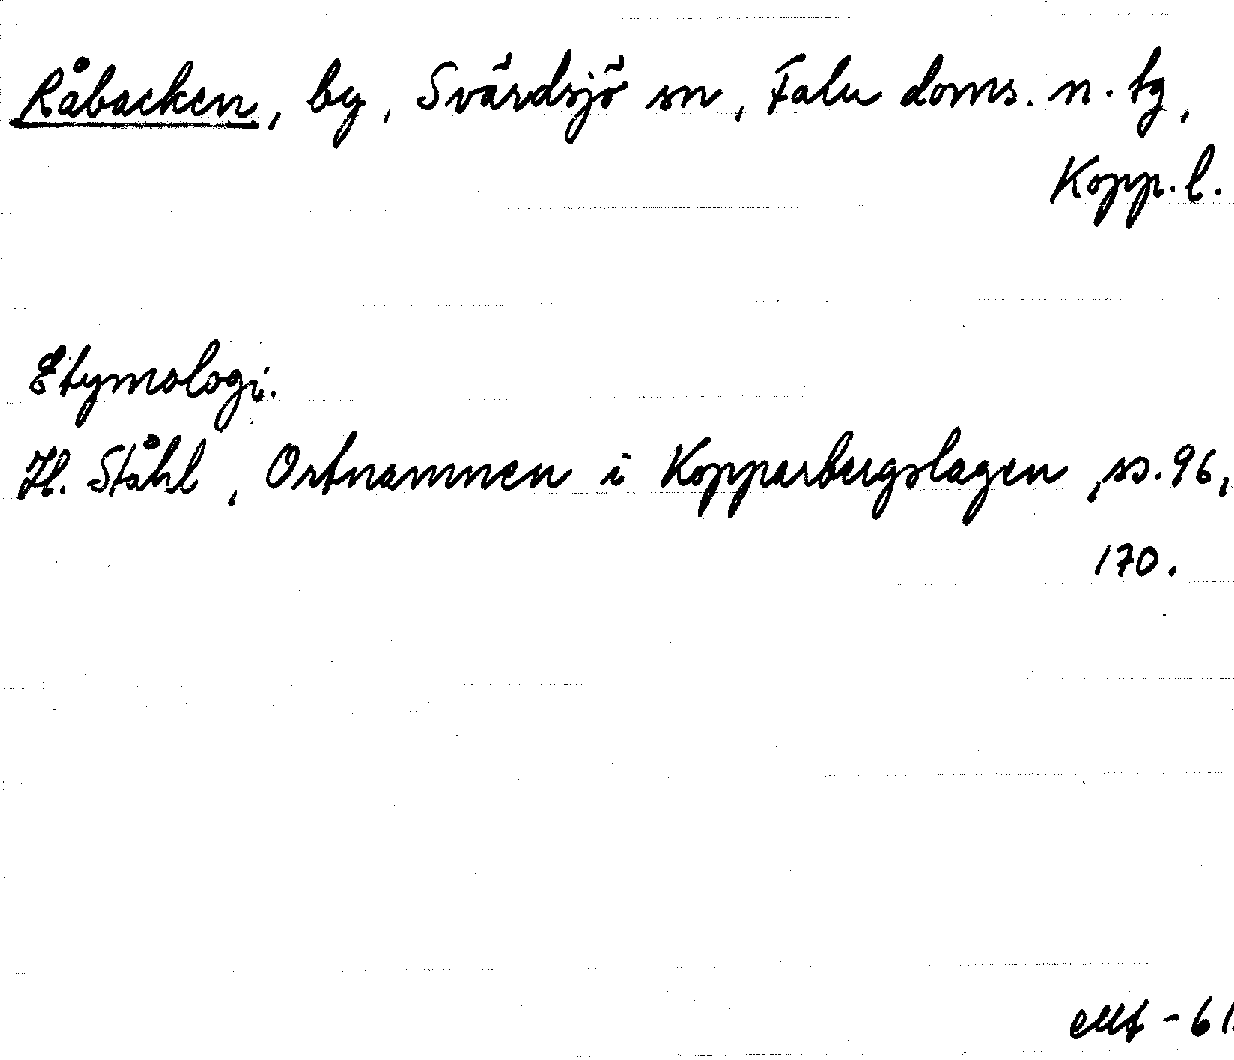 Råbacken, by, Svärdsjö sn, Falu doms. n. tg,
Kopp. l.
Etymologi.
H. Ståhl, Ortnamnen i Kopparbergslagen, ss. 96,
170.
-61